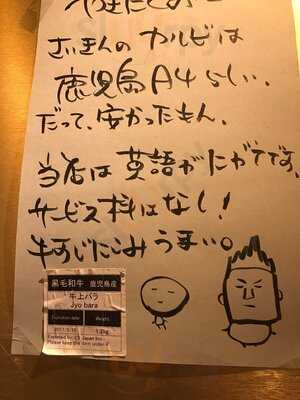 さいきんの カルビは
鹿児島A4らしい、
だって、安かったもん。
当店は 英語がにがてです。
サービス料はなし!
牛すじにこみ うまい。
黒毛和牛 鹿児島産
牛上バラ
Jyo bara
Weight
Please keep this item under